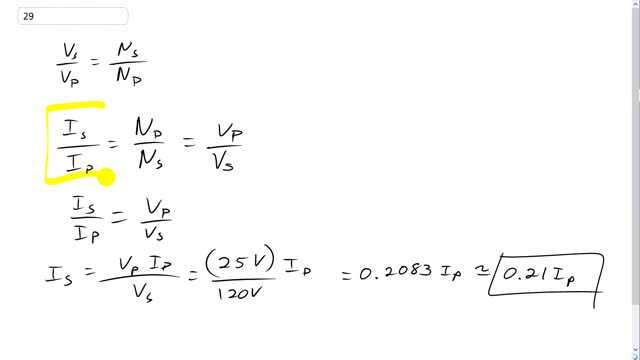 29
V_s/V_p = N_s/N_p
I_s/I_p = N_p/N_s = V_p/V_s
I_s/I_p = V_p/V_s
I_s = V_p I_p/V_s = (25V)/120V I_p = 0.2083 I_p ≃ 0.21 I_p